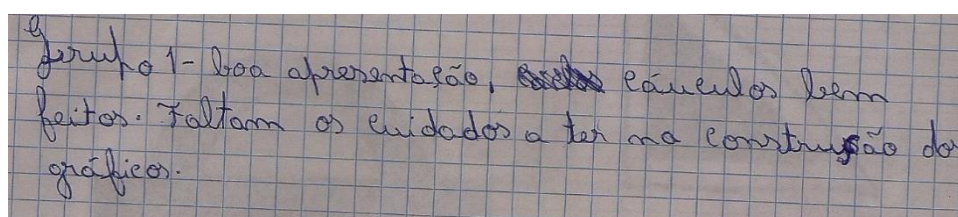 Grupo 1- boa apresentação, cáuculos bem
feitos. Faltam os cuidados a ter na construção do
gráficos.